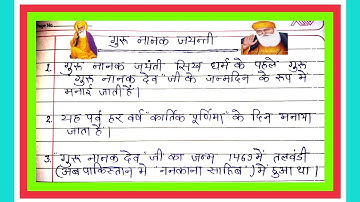 गुरु नानक जयन्ती
1. गुरु नानक जयंती सिख धर्म के पहले गुरु
"गुरु नानक देव" जी के जन्मदिन के रूप में
मनाई जाती है।
2. यह पर्व हर वर्ष "कार्तिक पूर्णिमा" के दिन मनाया
जाता है।
3. "गुरु नानक देव" जी का जन्म 1469 में तलवंडी
(अब पाकिस्तान में "ननकाना साहिब") में हुआ था।